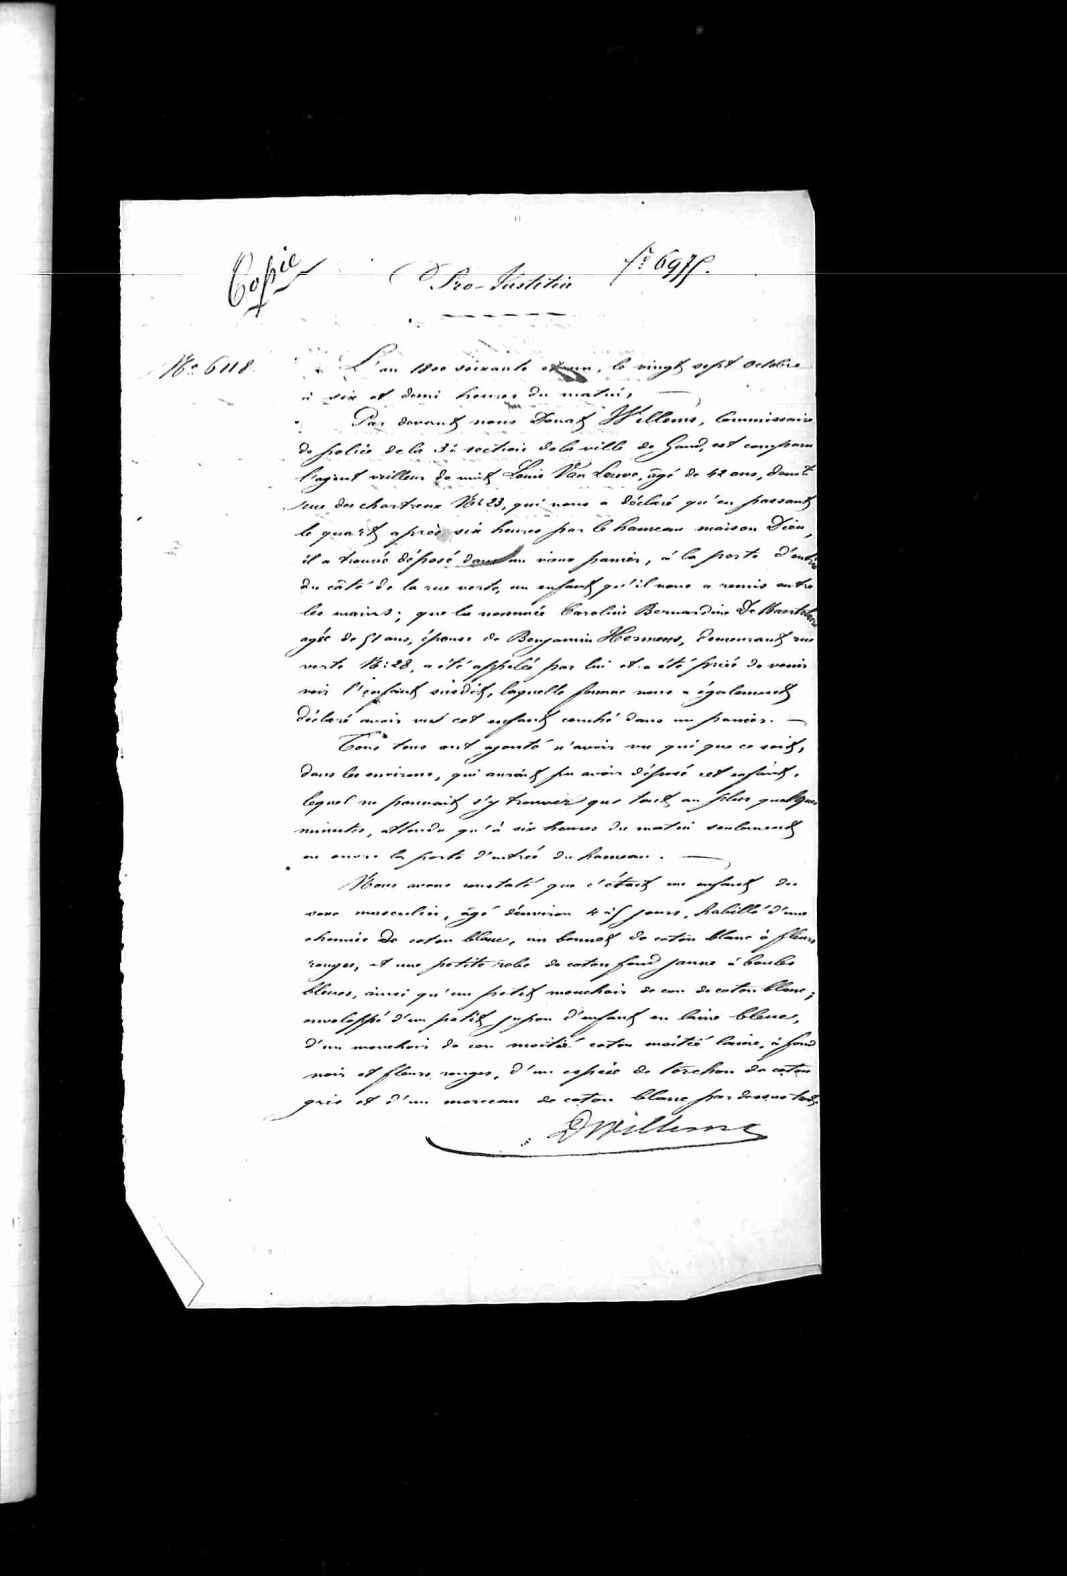 Copie
Pro-Justitia
N° 6975.
N° 6118.
L'an 1800 soixante et un, le vingt sept Octobre
à six et demi heures du matin,
Par devant nous Donat Willems, Commissaire
de police de la 3e section de la ville de Gand, est comparu
l'agent veilleur de nuit Louis Van Leuve, âgé de 42 ans, demt
rue des chartreux N° 23, qui nous a déclaré qu'en passant
le quart après six heures par le hameau maison Dieu,
il a trouvé déposé dans un vieux panier, à la porte d'entrée
du côté de la rue verte, un enfant qu'il nous a remis entre
les mains; que la nommée Caroline Bernardine
agée de 51 ans, épouse de Benjamin Hermens, demeurant rue
verte N° 28, a été appelée par lui et a été prié de venir
voir l'enfant susdit, laquelle femme nous a également
déclaré avoir vut cet enfant couché dans un panier.
Tous deux ont ajouté n'avoir vu qui que ce soit,
dans les environs, qui aurait pu avoir déposé cet enfant,
lequel ne pouvait s'y trouver que tout au plus quelques
minutes, attendu qu'à six heures du matin seulement
on ouvre la porte d'entrée du hameau.
Nous avons constaté que c'était un enfant du
sexe masculin, âgé d'environ 4 à 5 jours, habillé d'une
chemise de coton blanc, un bonnet de coton blanc à fleurs
rouges, et une petite robe de coton fond jaune à boules
bleues, ainsi qu'un petit mouchoir de cou de coton blanc;
enveloppé d'un petit jupon d'enfant en laine bleue,
d'un mouchoir de cou moitié coton moitié laine, à fond
noir et fleurs rouges, d'un espèce de torchon de coton
gris et d'un morceau de coton blanc par dessus tout.
DWillems